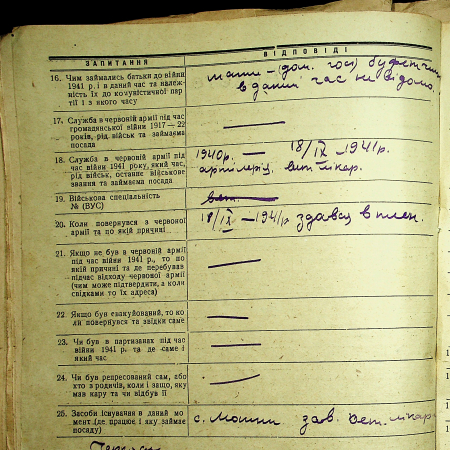 ЗАПИТАННЯ
ВІДПОВІДІ
16. Чим займались батьки до війни
1941 р. і в даний час та належ-
ність їх до комуністичної пар-
тії і з якого часу
мати – (дом. гос)
в даний час не відомо
17. Служба в червоній армії під час
громадянської війни 1917—22
років, рід військ та займаєма
посада
18. Служба в червоній армії під
час війни 1941 року, який час,
рід військ, останнє військове
звання та займаєма посада
1940р. — 18/IX –1941р.
вет лікар.
19. Військова спеціальність
№ (ВУС)
20. Коли повернувся з червоної
армії та по якій причині
18/IX –1941р здавсь в плен.
21. Якщо не був в червоній армії
під час війни 1941 р., то по
якій причині та де перебував
підчас відходу червоної армії
(чим може підтвердити, а коли
свідками то їх адреса)
22. Якщо був евакуйований, то ко-
ли повернувся та звідки саме
23. Чи був в партизанах під час
війни 1941 р. та де саме і
який час
24. Чи був репресований сам, або
хто з родичів, коли і защо, яку
мав кару та чи відбув її
25. Засоби існування в даний мо-
мент (де працює і яку займає
посаду)
с. Мошни зав. вет. лікар.